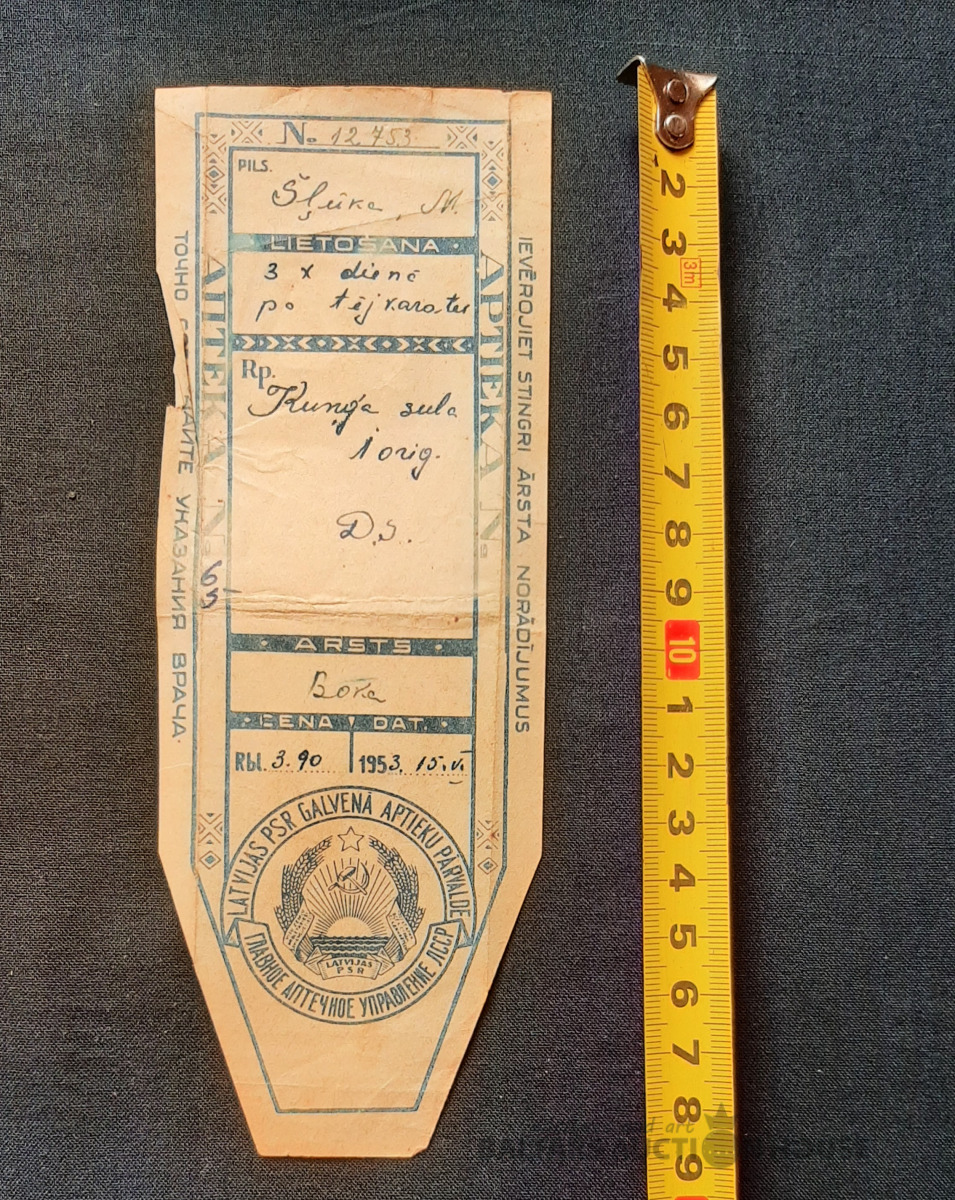 № 12.753
PILS.
Šļūka, M.
LIETOŠANA
3 x dienā
po tējkarotei
Rp.
Kuņģa sula
1 orig.
D.S.
ĀRSTS
CENA DAT.
Rbl. 3.90 1953. 15.VI
LATVIJAS PSR GALVENĀ APTIEKU PĀRVALDE
LATVIJAS
PSR
ГЛАВНОЕ АПТЕЧНОЕ УПРАВЛЕНИЕ ЛССР
АПТЕКА №
APTIEKA №
ТОЧНО УКАЗАНИЯ ВРАЧА.
IEVĒROJIET STINGRI ĀRSTA NORĀDĪJUMUS
2
3
3m
4
5
6
7
8
9
10
1
2
3
4
5
6
7
8
9